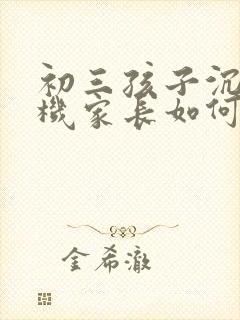 初三孩子沉
機家長如何
金希澈